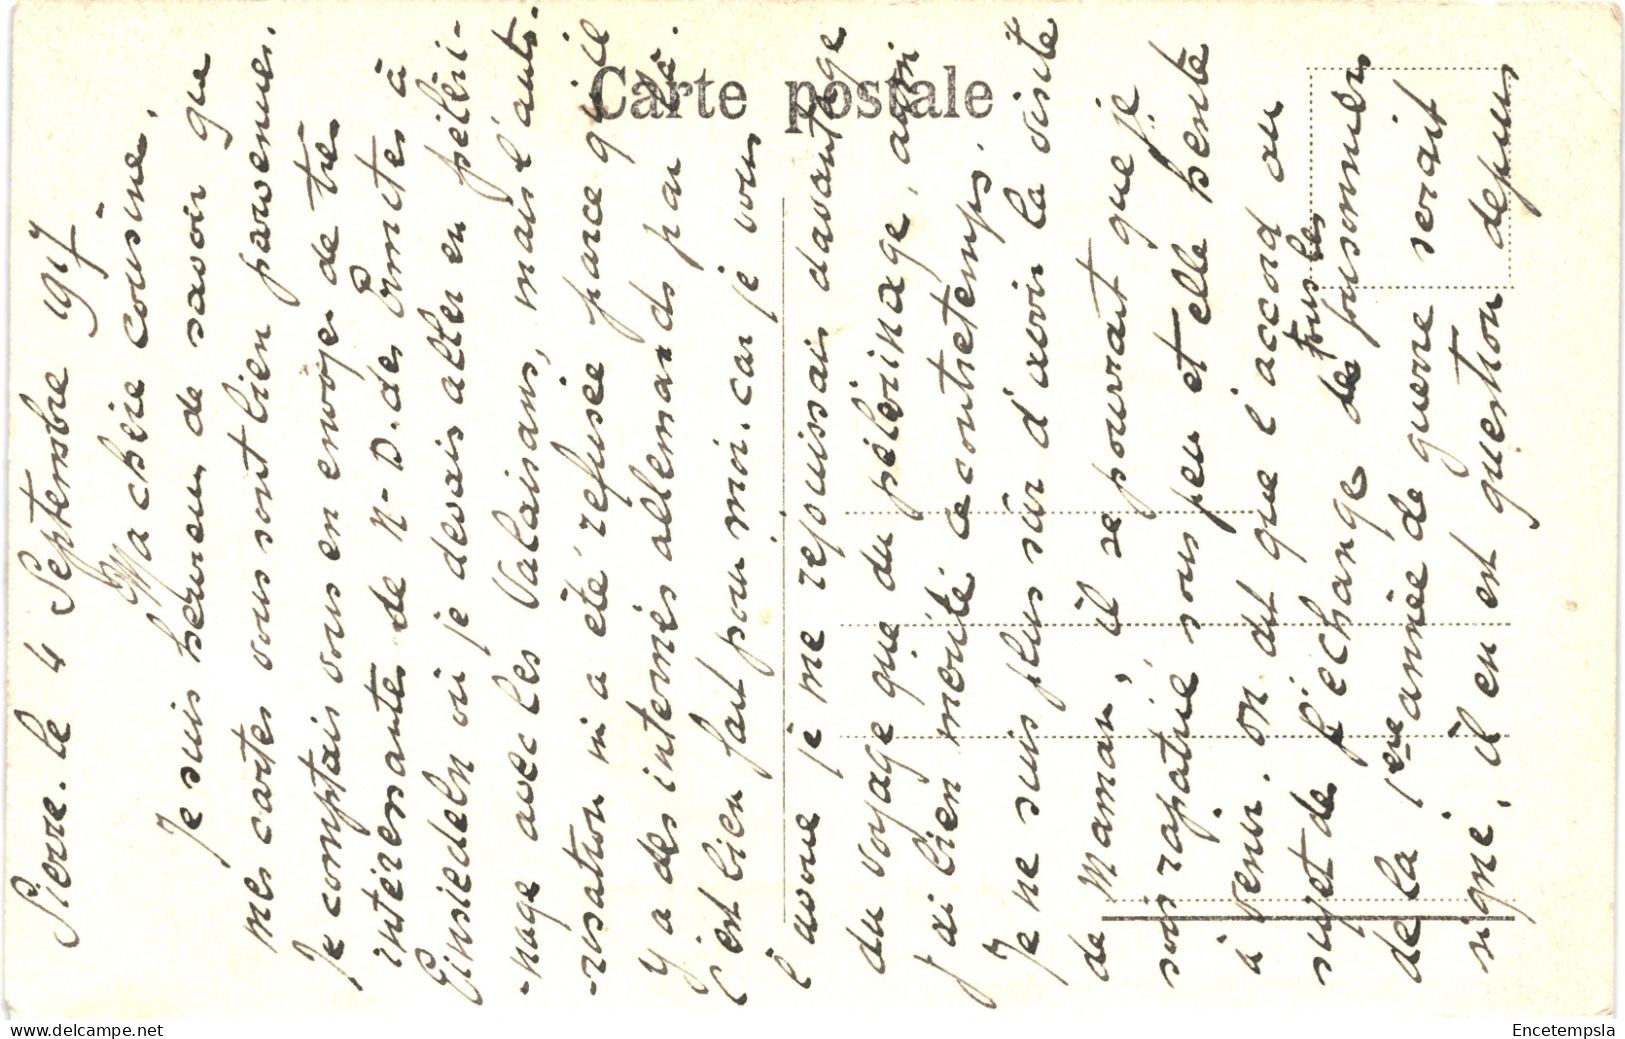 Carte postale
Sierre. le 4 Septembre 1917
Ma chère cousine,
Je suis heureux de savoir que
mes cartes vous sont bien parvenues.
Je comptais vous en envoyer de très
intéressantes de N-D. des Ermites à
Einsiedeln où je devais aller en pèleri-
-nage avec les Valaisans, mais l'auto-
-risation m'a été refusée parce qu'il
y a des internés allemands par là.
C'est bien fait pour moi. car je vous
l'avoue je me rejouissais davantage
du voyage que du pélerinage, aussi
j'ai bien mérité ce contretemps.
Je ne suis plus sûr d'avoir la visite
de Maman, il se pourrait que je
sois rapatrié sous peu et elle hésite
à venir. On dit que l'accord au
sujet de l'échange de tous les prisonniers
de la 1ere année de guerre serait
signé, il en est question depuis
www.delcampe.net
Encetempsla